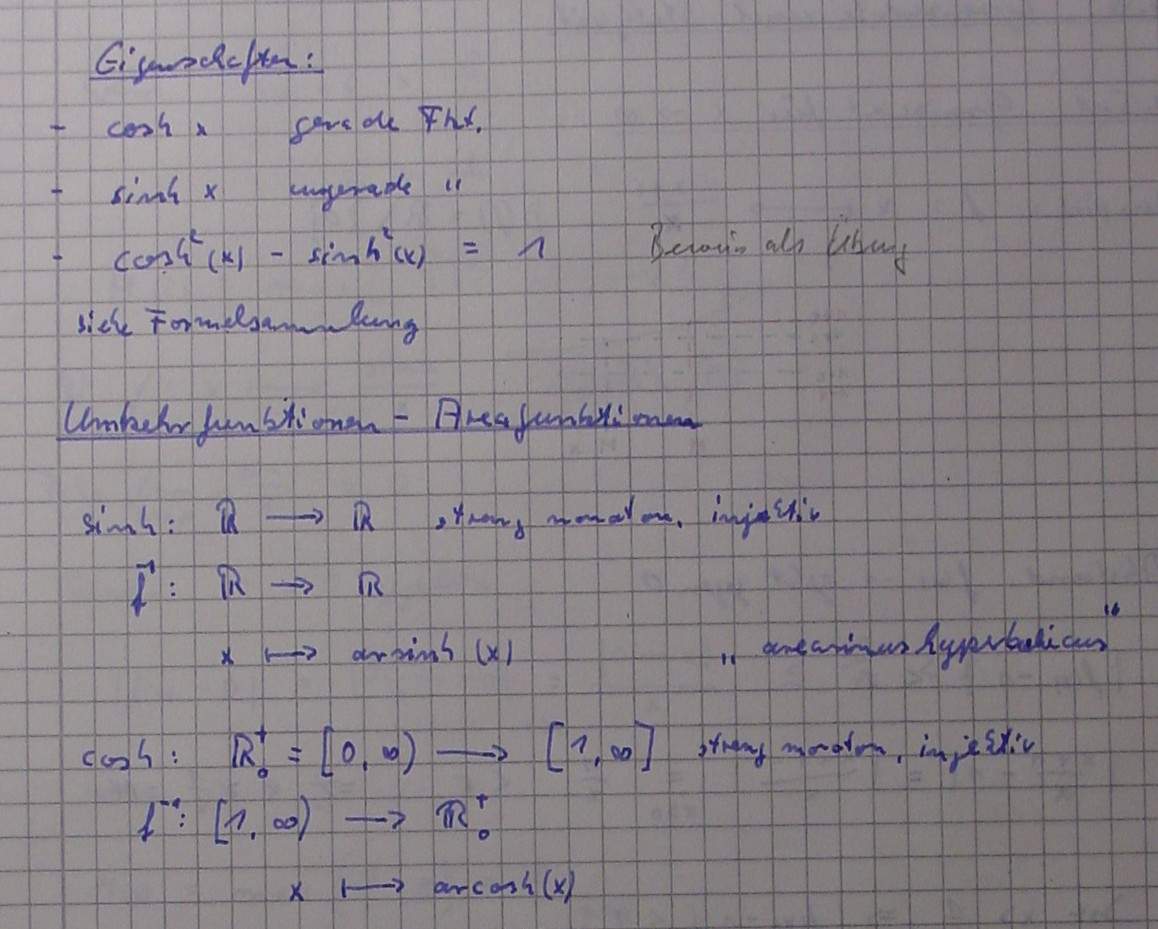 Eigenschaften:
- cosh x gerade Fkt.
- sinh x ungerade "
- cosh²(x) - sinh²(x) = 1 Beweis als Übung
siehe Formelsammlung
Umkehrfunktionen - Areafunktionen
sinh: ℝ → ℝ streng monoton, injektiv
f⁻¹: ℝ → ℝ
x ↦ arsinh (x) „ areasinus hyperbolicus“
cosh: ℝ₀⁺ = [0, ∞) → [1, ∞] streng monoton, injektiv
f⁻¹: [1, ∞) → ℝ₀⁺
x ↦ arcosh(x)